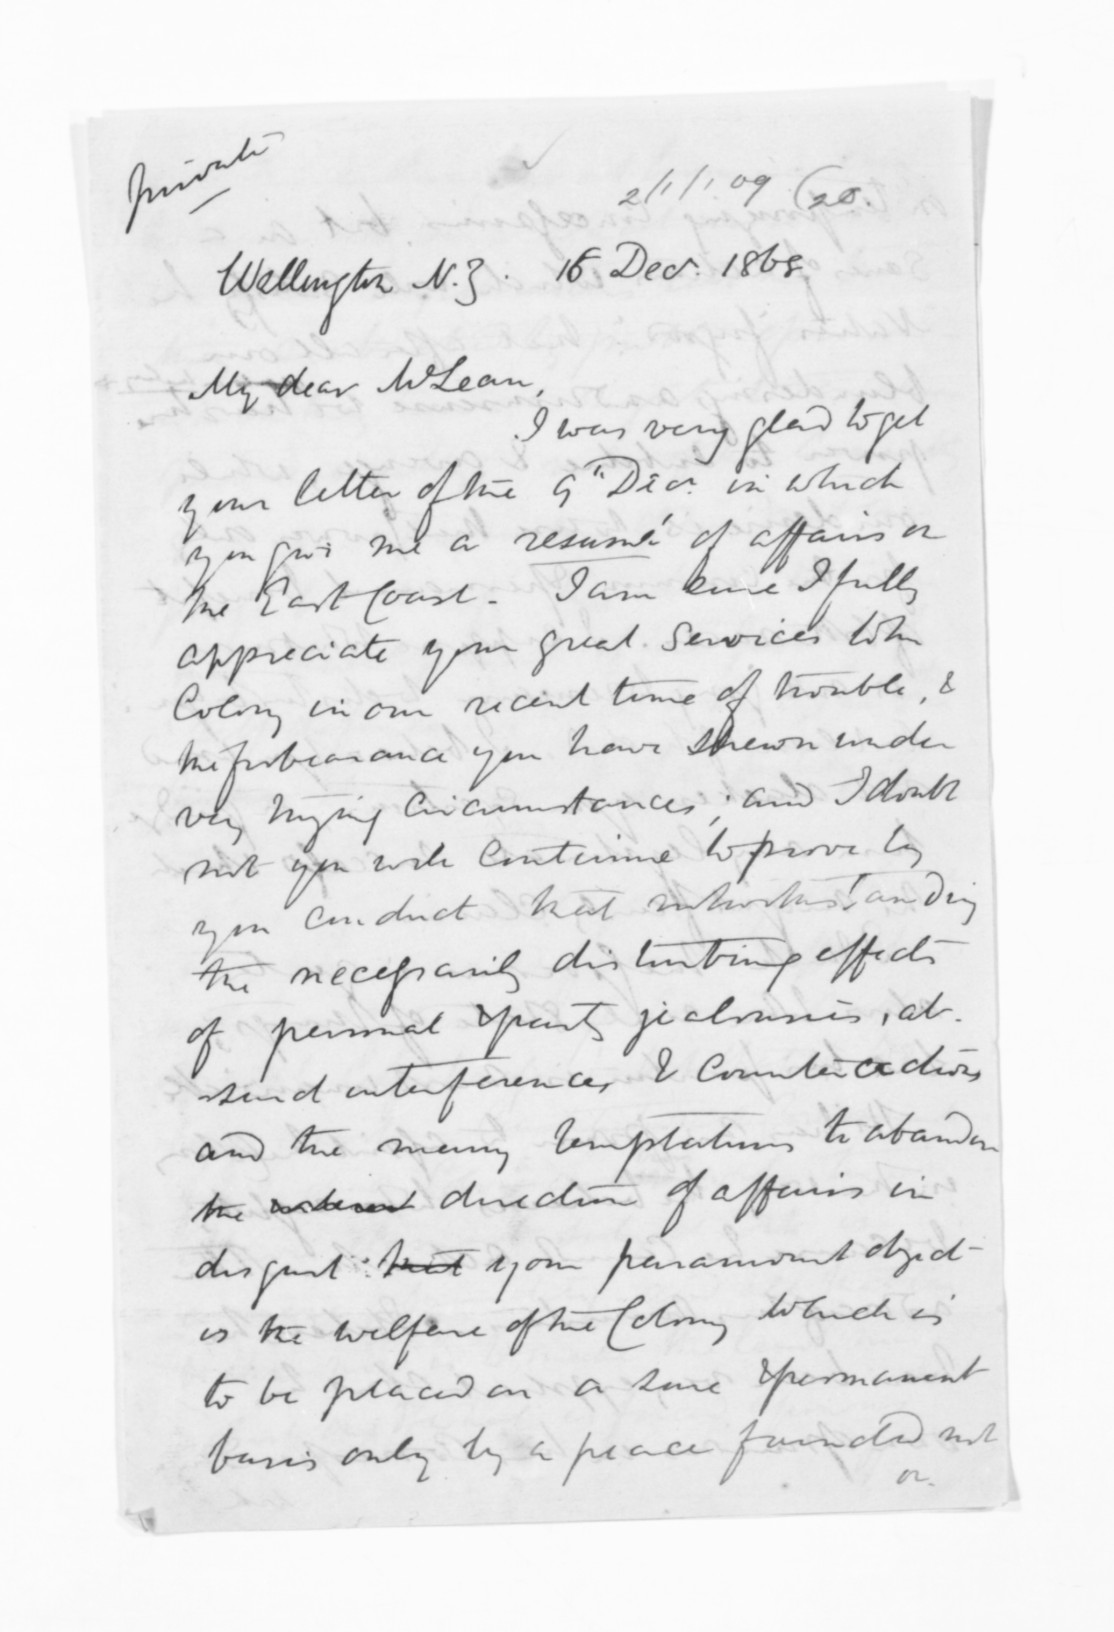 Private
2/1/1 09 (20.
Wellington N.Z. 16 Decr. 1868
My dear McLean,
I was very glad to get
your letter of the 9th Decr. in which
you give me a resumé of affairs on
the East Coast. I am sure I fully
appreciate your great services to the
Colony in our recent time of trouble, &
the forbearance you have shewn under
very trying circumstances; and I doubt
not you will continue to prove by
your conduct that notwithstanding
the necessarily disturbing effects
of personal & party jealousies, ab-
surd interferences & counteractions
and the many temptations to abandon
the interest direction of affairs in
disgust: that your paramount object
is the welfare of the Colony which is
to be placed on a sure & permanent
basis only by a peace founded not
on.